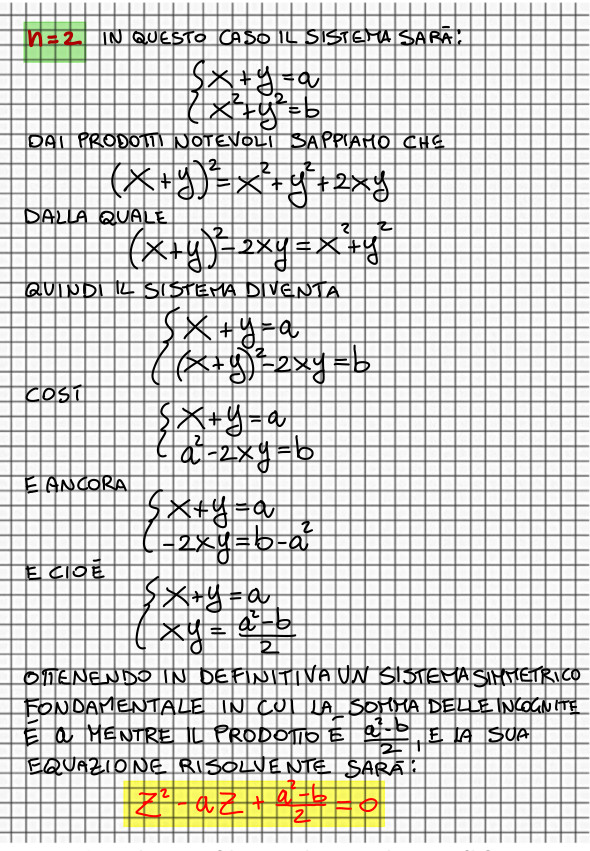 n=2 IN QUESTO CASO IL SISTEMA SARĀ:
{x+y=a
x²+y²=b
DAI PRODOTTI NOTEVOLI SAPPIAMO CHE
(x+y)²=x²+y²+2xy
DALLA QUALE
(x+y)²-2xy=x²+y²
QUINDI IL SISTEMA DIVENTA
{x+y=a
(x+y)²-2xy=b
COSĪ
{x+y=a
a²-2xy=b
E ANCORA
{x+y=a
-2xy=b-a²
E CIOĒ
{x+y=a
xy=\frac{a²-b}{2}
OTTENENDO IN DEFINITIVA UN SISTEMA SIMMETRICO
FONDAMENTALE IN CUI LA SOMMA DELLE INCOGNITE
Ē a MENTRE IL PRODOTTO Ē \frac{a²-b}{2}, E LA SUA
EQUAZIONE RISOLVENTE SARĀ:
z²-az+\frac{a²-b}{2}=0